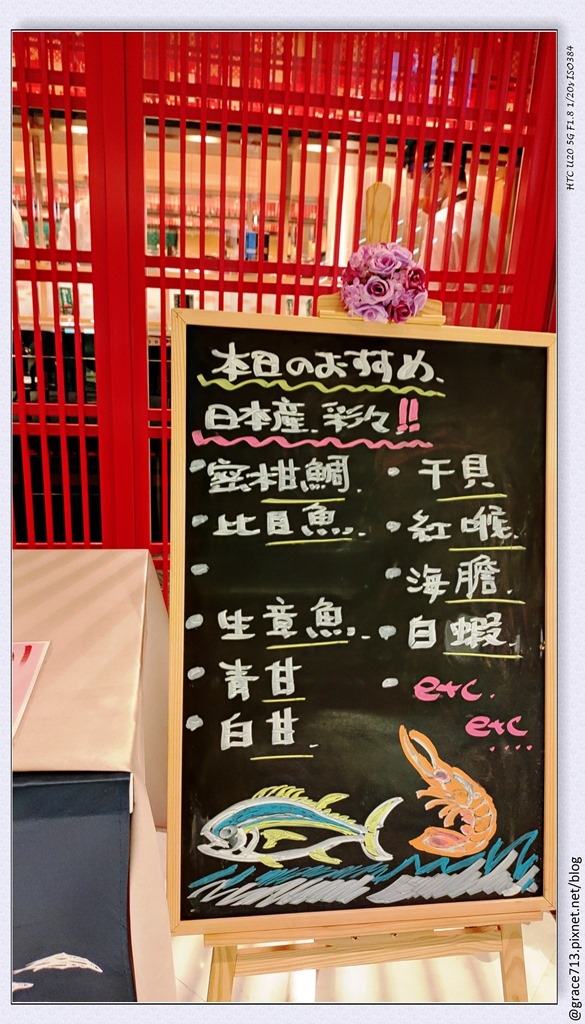 本日のおすすめ、
日本産、彩々!!
・蜜柑鯛.
・比目魚.
・
・生章魚.
・青甘
・白甘.
・干貝
・紅喉.
・海膽.
・白蝦.
・etc.
etc....
HTC U20 5G F1.8 1/20s ISO384
@grace713.pixnet.net/blog